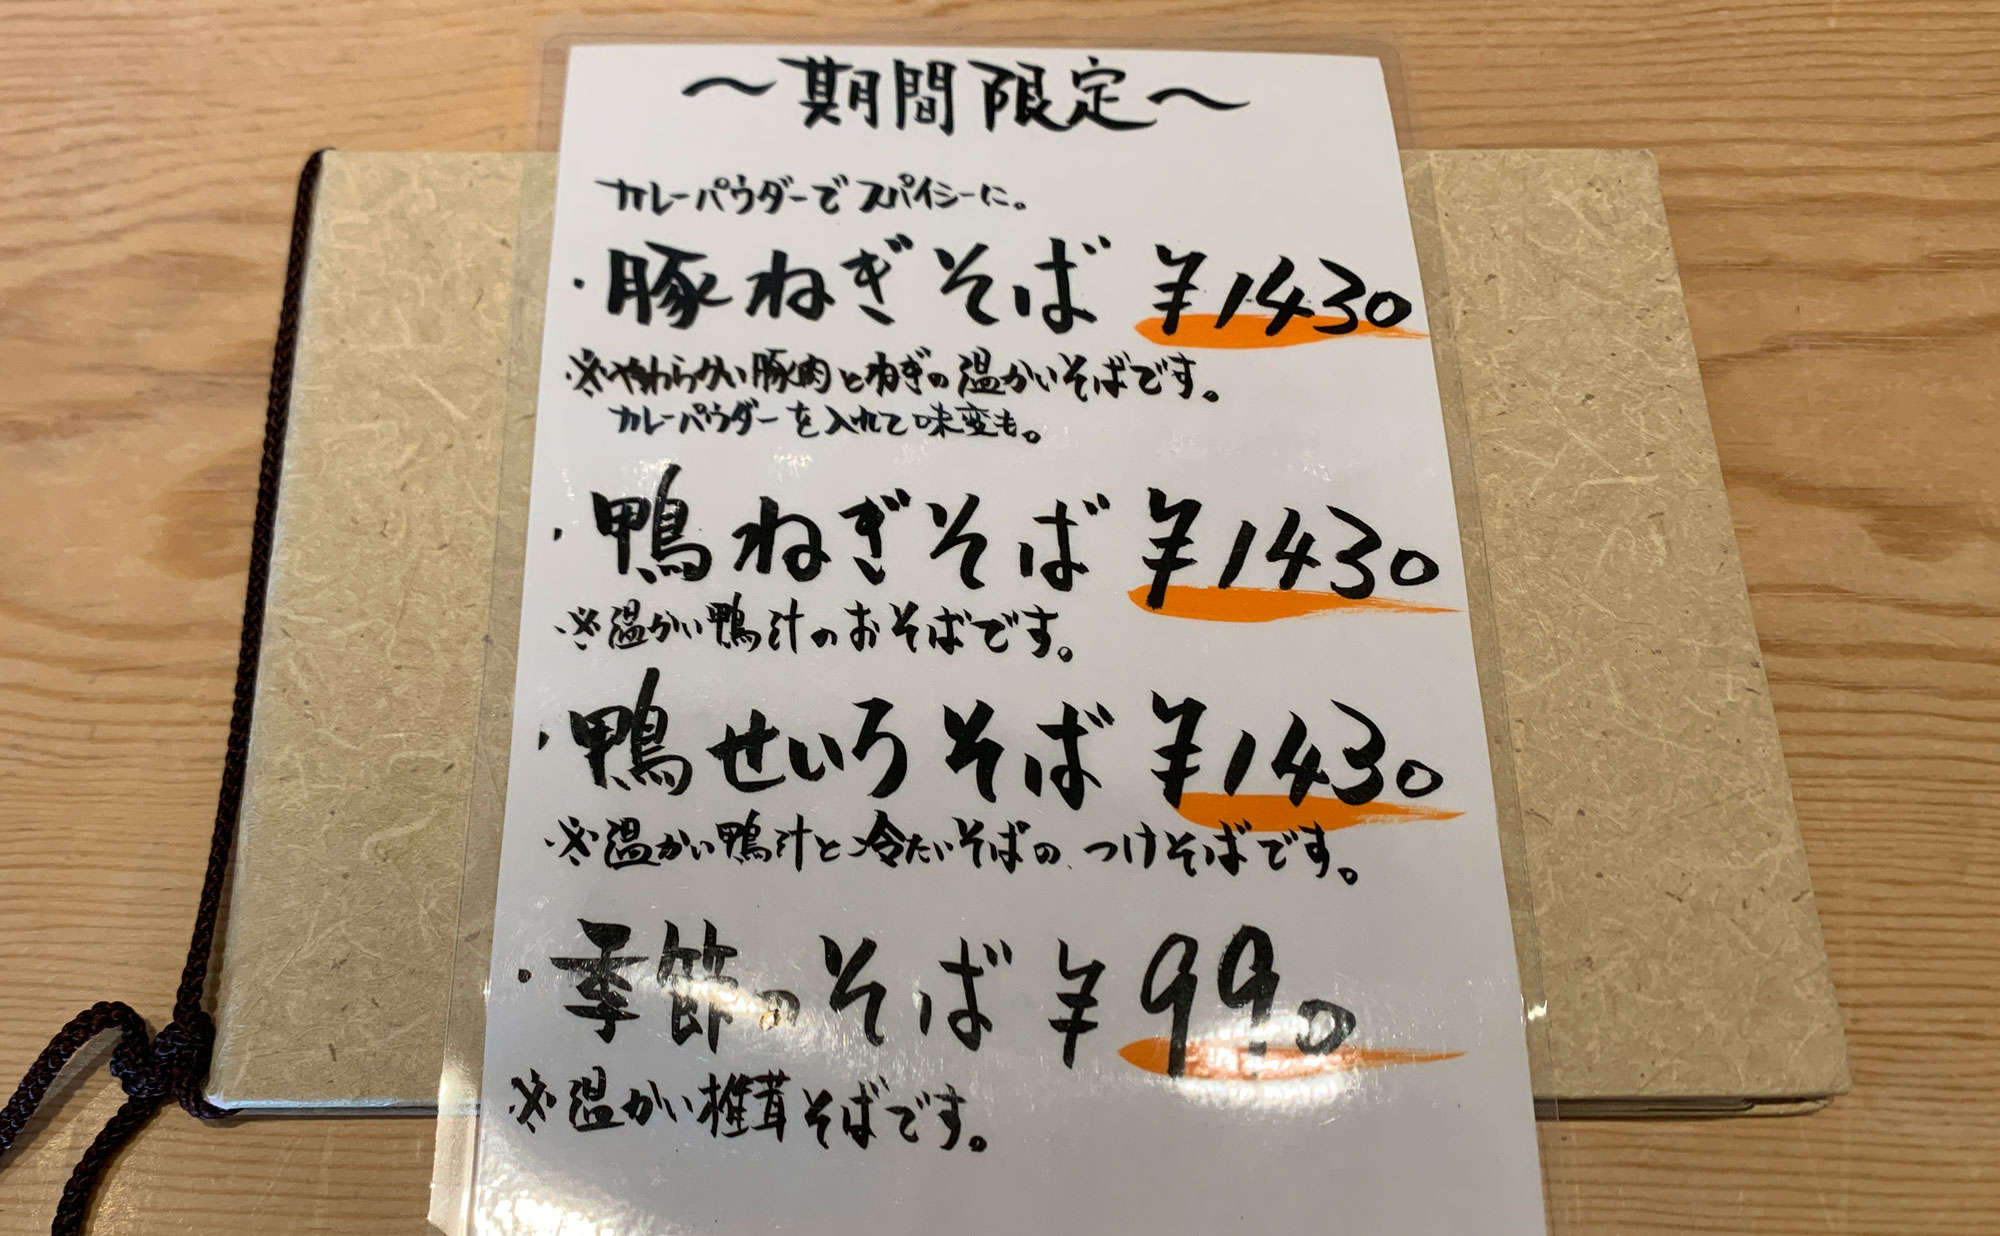 ～期間限定～
カレーパウダーでスパイシーに。
・豚ねぎそば ¥1430
※やわらかい豚肉とねぎの温かいそばです。
カレーパウダーを入れて味変も。
・鴨ねぎそば ¥1430
※温かい鴨汁のおそばです。
・鴨せいろそば ¥1430
※温かい鴨汁と冷たいそばの つけそばです。
・季節のそば ¥990
※温かい椎茸そばです。